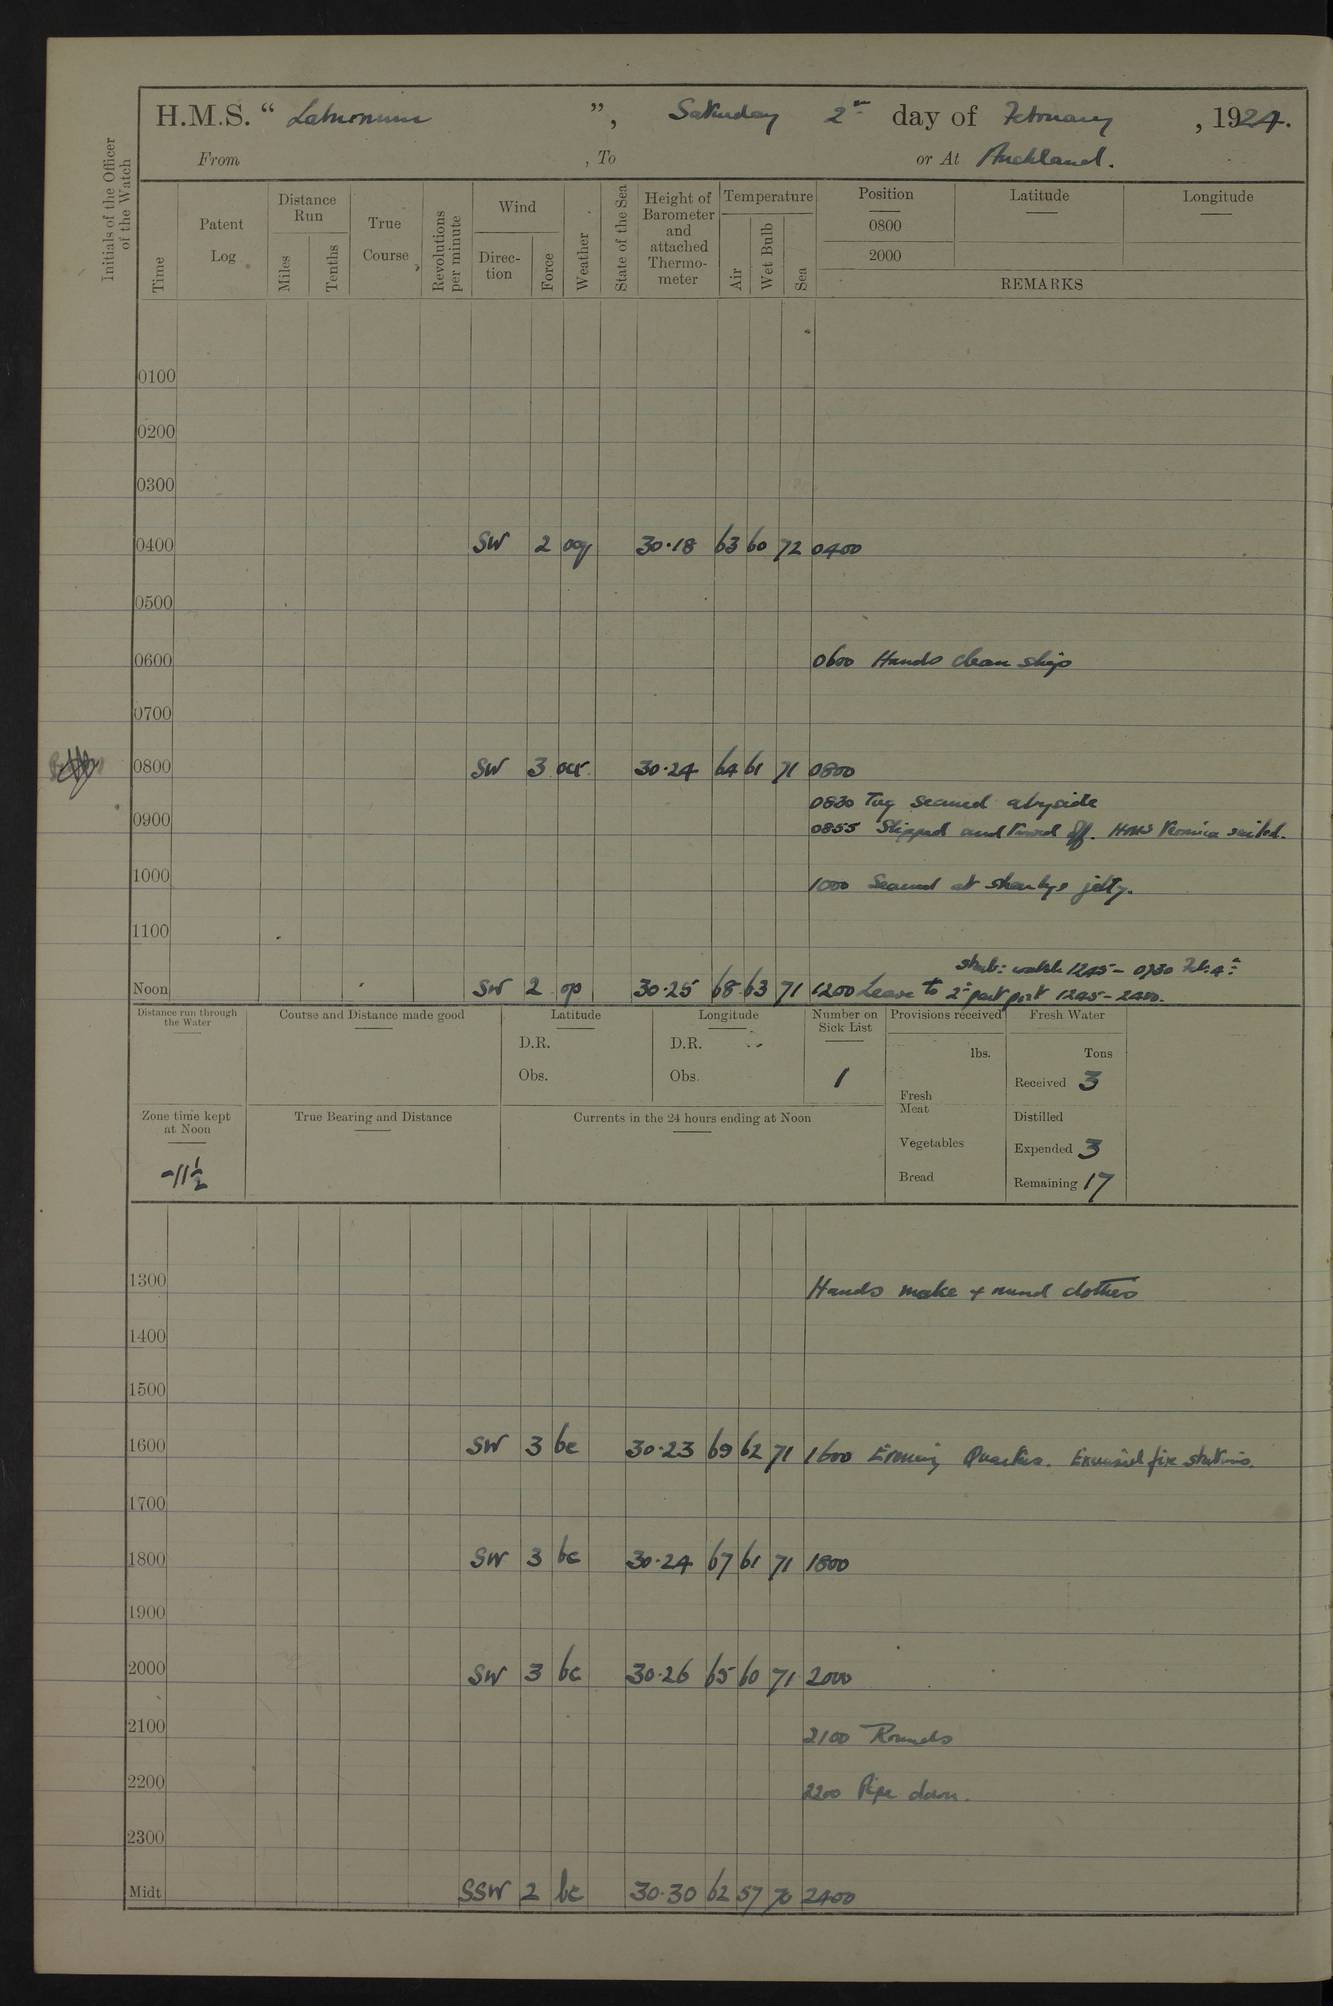 H.M.S. “ Laburnum ”, Saturday 2nd day of February, 1924.
From , To or At Auckland.
Initials of the Officer of the Watch
Time
Patent Log
Distance Run
Miles
Tenths
True Course
Revolutions per minute
Wind
Direc-tion
Force
Weather
State of the Sea
Height of Barometer and attached Thermo-meter
Temperature
Air
Wet Bulb
Sea
Position
0800
2000
Latitude
Longitude
REMARKS
0100
0200
0300
0400 SW 2 ocq 30.18 63 60 72 0400
0500
0600 0600 Hands clean ship
0700
0800 SW 3 ocr. 30.24 64 61 71 0800
0830 Tug secured alongside
0900 0855 Slipped and towed off. HMS Veronica sailed.
1000 1000 Secured at jetty.
1100
watch 1245 - 0730 Feb: 4th
Noon SW 2 op 30.25 68 63 71 1200 Leave to 2nd part port 1245 - 2400.
Distance run through the Water
Course and Distance made good
Latitude
D.R.
Obs.
Longitude
D.R.
Obs.
Number on Sick List
1
Provisions received
lbs.
Fresh Meat
Vegetables
Bread
Fresh Water
Tons
Received 3
Distilled
Expended 3
Remaining 17
Zone time kept at Noon
-11½
True Bearing and Distance
Currents in the 24 hours ending at Noon
1300 Hands make & mend clothes
1400
1500
1600 SW 3 bc 30.23 69 62 71 1600 Evening Quarters. Exercised fire stations.
1700
1800 SW 3 bc 30.24 67 61 71 1800
1900
2000 SW 3 bc 30.26 65 60 71 2000
2100 2100 Rounds
2200 2200 Pipe down.
2300
Midt SSW 2 bc 30.30 62 57 70 2400